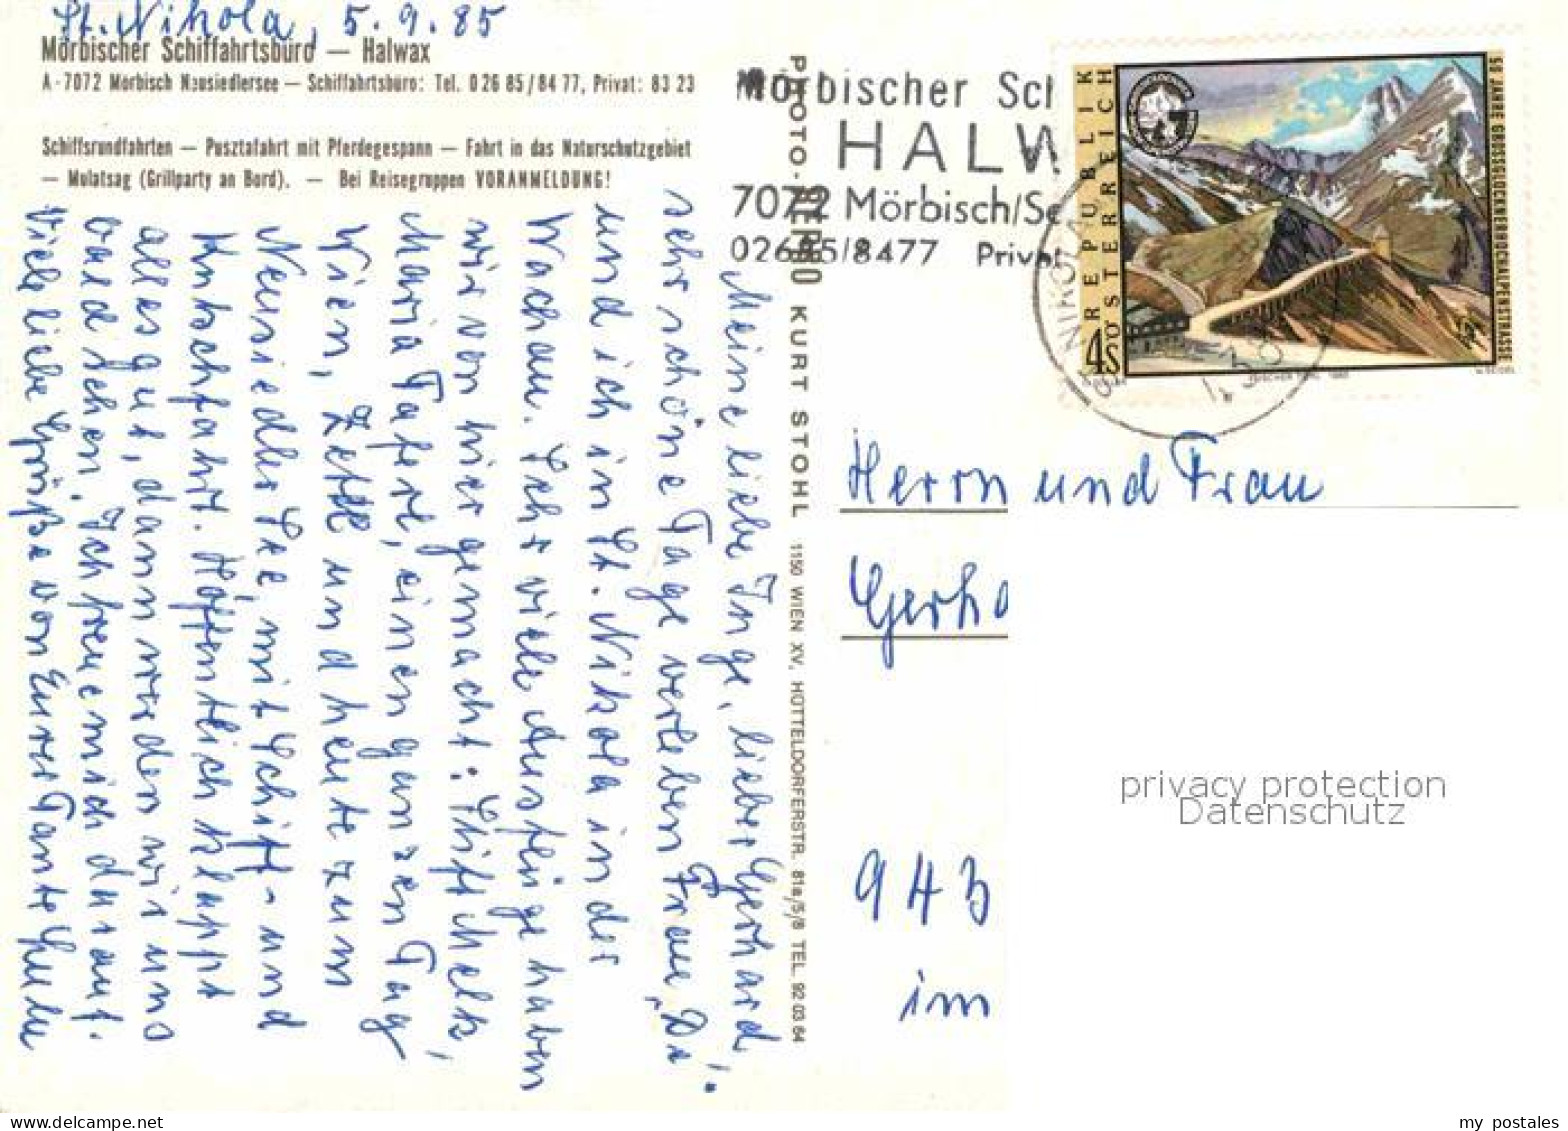 St. Nikola, 5.9.85
Mörbischer Schiffahrtsbüro — Halwax
A-7072 Mörbisch Neusiedlersee — Schiffahrtsbüro: Tel. 0 26 85 / 84 77, Privat: 83 23
Schiffsrundfahrten — Pusztafahrt mit Pferdegespann — Fahrt in das Naturschutzgebiet
— Mulatsag (Grillparty an Bord). — Bei Reisegruppen VORANMELDUNG!
Meine liebe Inge, lieber Gerhard!
sehr schöne Tage verleben Frau „Di"
und ich in St. Nikola in der
Wachau. Sehr viele Ausflüge haben
wir von hier gemacht: Stift Melk,
Maria Taferl, einen ganzen Tag
Wien, Zettl und heute zum
Neusiedler See, mit Schiff- und
Kutschfahrt. Hoffentlich klappt
alles gut, dann werden wir uns
bald sehen. Ich freue mich darauf.
Viele liebe Grüße von Eurer Tante
PHOTO KURT STOHL 1150 WIEN XV, HÜTTELDORFERSTR. 81a/5/8 TEL. 92 03 64
Mörbischer Sc
HALW
7072 Mörbisch/Se
02685/8477 Privat
REPUBLIK
ÖSTERREICH
4S
50 JAHRE GROSSGLOCKNERHOCHALPENSTRASSE
Herrn und Frau
Gerha
943
im
privacy protection
Datenschutz
my postales